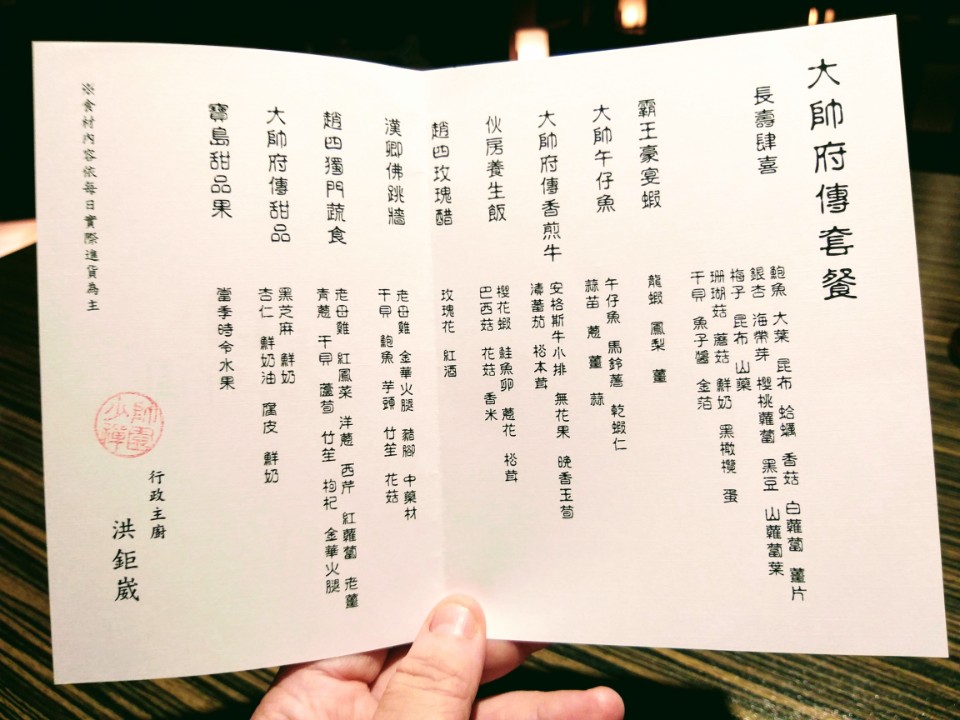 大帥府傳套餐
長壽肆喜
鮑魚 大葉 昆布 蛤蠣 香菇 白蘿蔔 薑片
銀杏 海帶芽 櫻桃蘿蔔 黑豆 山蘿蔔葉
梅子 昆布 山藥
珊瑚菇 蘑菇 鮮奶 黑橄欖 蛋
干貝 魚子醬 金箔
霸王豪宴蝦
龍蝦 鳳梨 薑
大帥午仔魚
午仔魚 馬鈴薯 乾蝦仁
蒜苗 蔥 薑 蒜
大帥府傳香煎牛
安格斯牛小排 無花果 晚香玉筍
漬蕃茄 松本茸
伙房養生飯
櫻花蝦 鮭魚卵 蔥花 松茸
巴西菇 花菇 香米
趙四玫瑰醋
玫瑰花 紅酒
漢卿佛跳牆
老母雞 金華火腿 豬腳 中藥材
干貝 鮑魚 芋頭 竹笙 花菇
趙四獨門蔬食
老母雞 紅鳳菜 洋蔥 西芹 紅蘿蔔 老薑
青蔥 干貝 蘆筍 竹笙 枸杞 金華火腿
大帥府傳甜品
黑芝麻 鮮奶
杏仁 鮮奶油 腐皮 鮮奶
寶島甜品果
當季時令水果
※食材內容依每日實際進貨為主
帥園
少禪
行政主廚
洪鉅崴